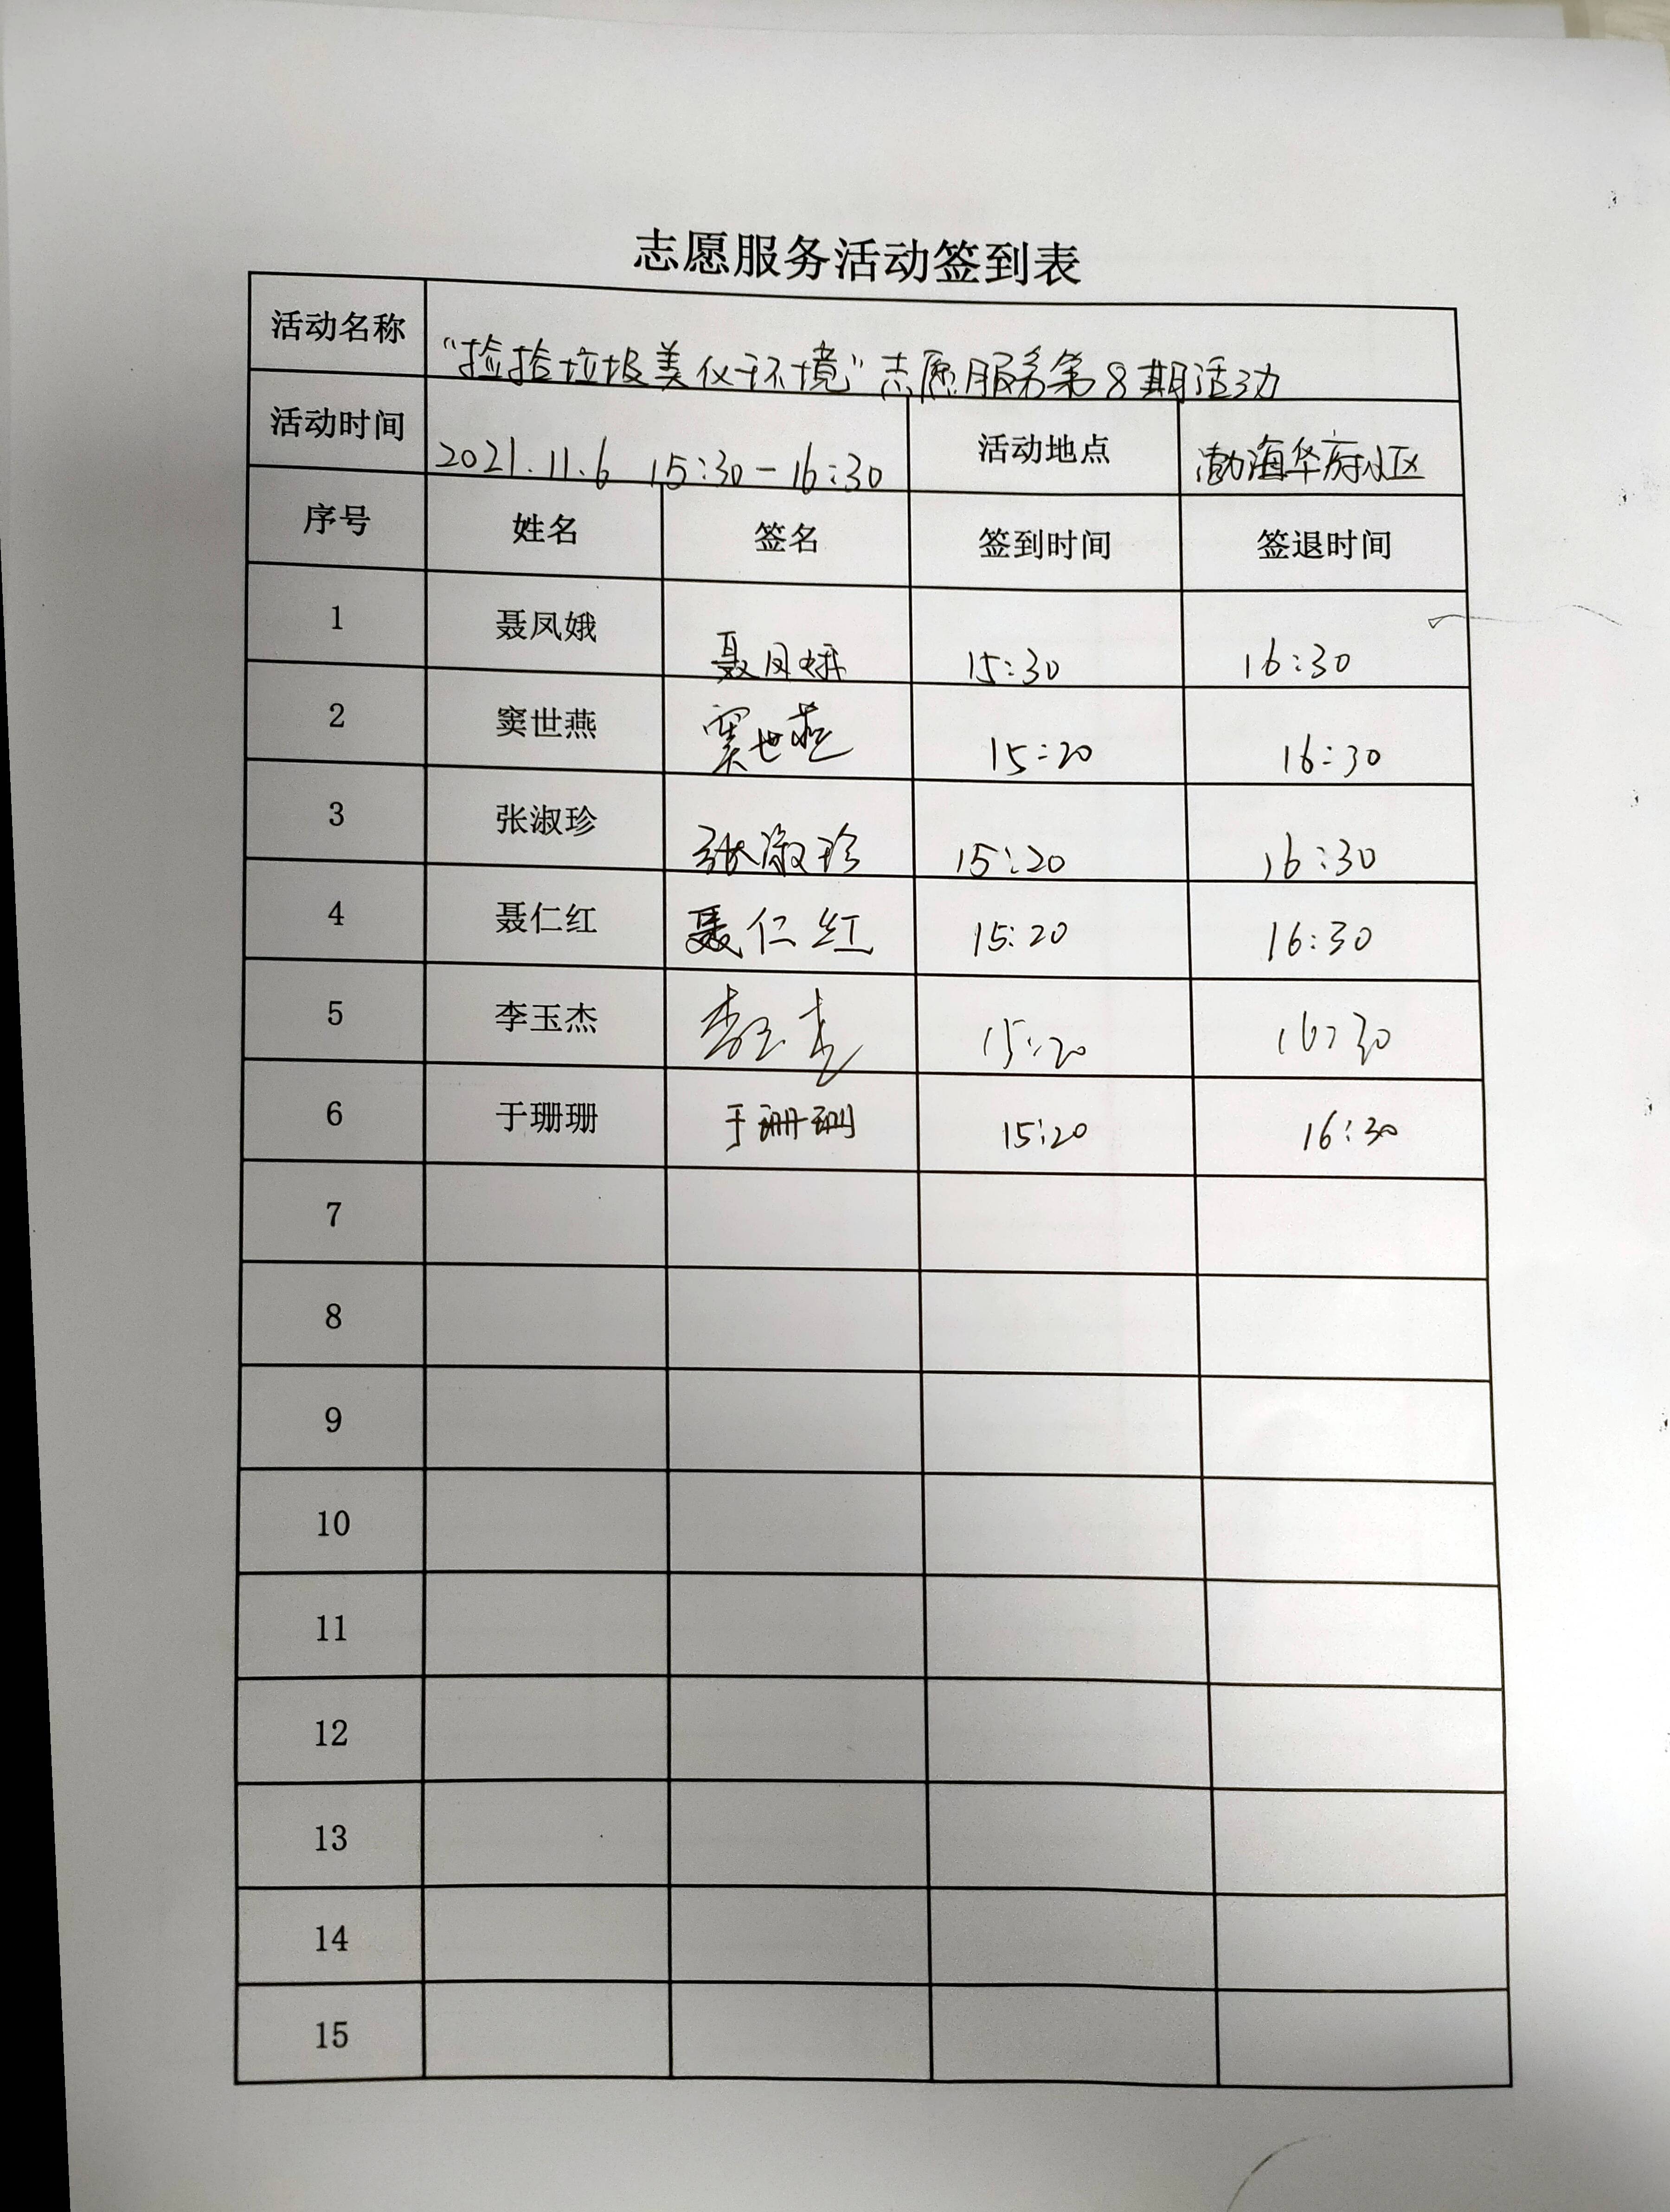 志愿服务活动签到表
活动名称 “捡捡垃圾美化环境”志愿服务第8期活动
活动时间 2021.11.6 15:30-16:30 活动地点 渤海华府小区
序号 姓名 签名 签到时间 签退时间
1 聂凤娥 聂凤娥 15:30 16:30
2 窦世燕 窦世燕 15:20 16:30
3 张淑珍 张淑珍 15:20 16:30
4 聂仁红 聂仁红 15:20 16:30
5 李玉杰 李玉杰 15:20 16:30
6 于珊珊 于珊珊 15:20 16:30
7
8
9
10
11
12
13
14
15